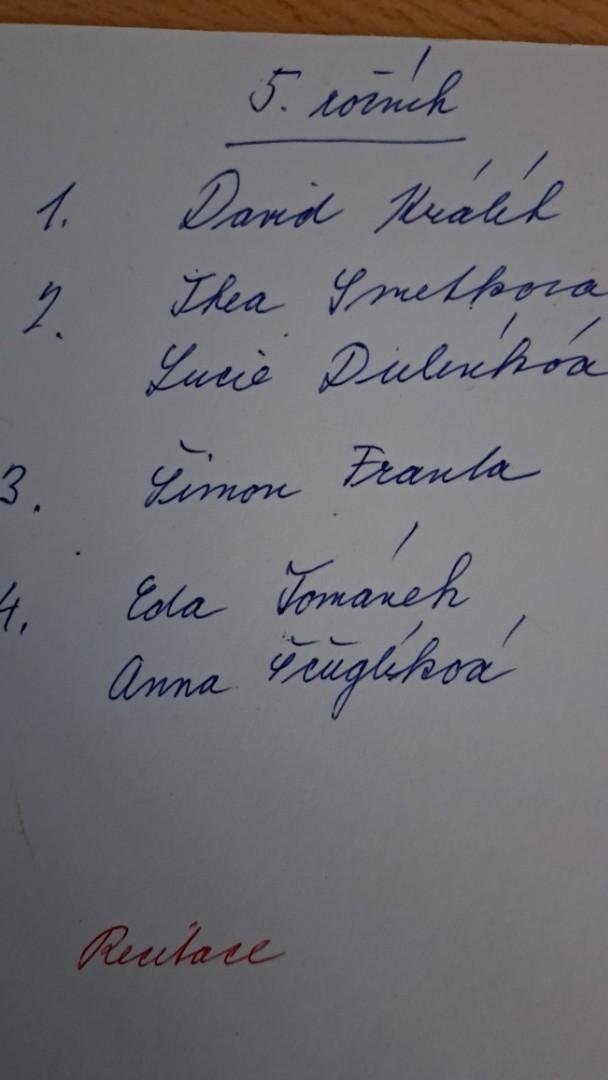 5. ročník
1. David Králík
2. Thea Smetkova
Lucie Dulínková
3. Šimon Franta
4. Eda Tománek
Anna Ščuglíková
Recitace